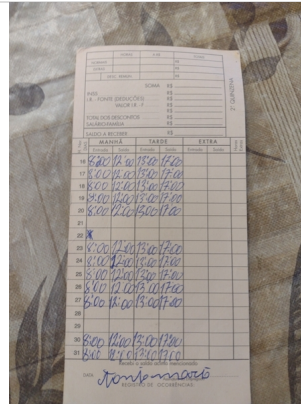 SOMA R$
INSS R$
I.R. - FONTE (DEDUÇÕES) R$
VALOR I.R. - F R$
TOTAL DOS DESCONTOS R$
SALÁRIO FAMÍLIA R$
SALDO A RECEBER R$
2ª QUINZENA
MANHÃ TARDE EXTRA
Entrada Saída Entrada Saída Entrada Saída
16 8:00 12:00 13:00 17:00
17 8:00 12:00 13:00 17:00
18 8:00 12:00 13:00 17:00
19 8:00 12:00 13:00 17:00
20 8:00 12:00 13:00 17:00
21
22 x
23 8:00 12:00 13:00 17:00
24 8:00 12:00 13:00 17:00
25 8:00 12:00 13:00 17:00
26 8:00 12:00 13:00 17:00
27 8:00 12:00 13:00 17:00
28
29
30 8:00 12:00 13:00 17:00
31 8:00 12:00 13:00 17:00
Recebi o saldo acima mencionado
DATA
REGISTRO DE OCORRÊNCIAS